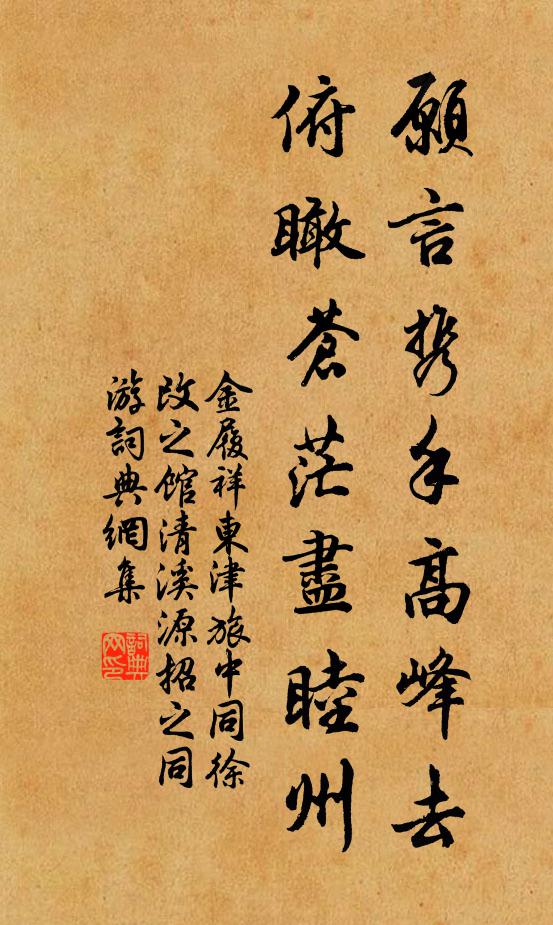 願言携手高峰去
俯瞰蒼茫盡睦州
金履祥東津旅中同徐
改之館清溪源招之同
游詞典網集
詞典网印